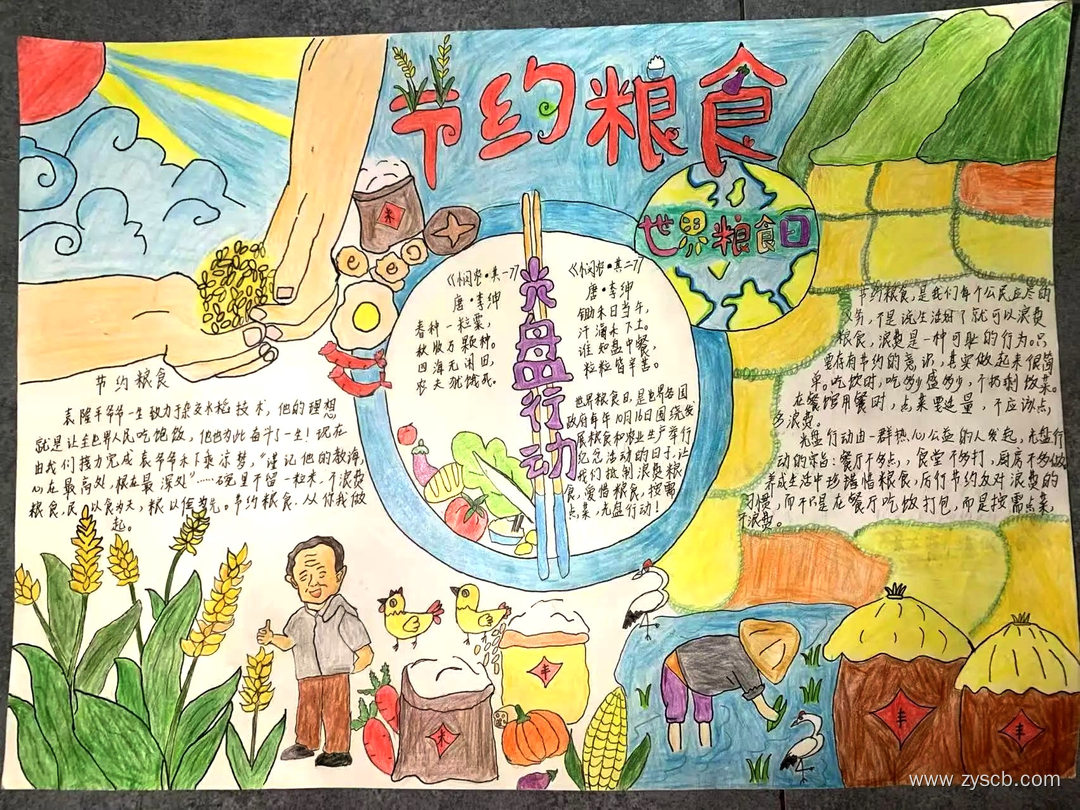 节约粮食
世界粮食日
光盘行动
《悯农·其一》
唐·李绅
春种一粒粟,
秋收万颗种。
四海无闲田,
农夫犹饿死。
《悯农·其二》
唐·李绅
锄禾日当午,
汗滴禾下土。
谁知盘中餐,
粒粒皆辛苦。
世界粮食日,是世界各国
政府每年10月16日围绕发
展粮食和农业生产举行
纪念活动的日子,让
我们抵制浪费粮
食,爱惜粮食,按需
点菜,光盘行动!
节约粮食
袁隆平爷爷一生致力于杂交水稻技术,他的理想
就是让全世界人民吃饱饭,他也为此奋斗了一生!现在
由我们接力完成袁爷爷禾下乘凉梦,"谨记他的教诲,
心在最高处,根在最深处"……碗里不留一粒米,不浪费
粮食,民以食为天,粮以俭为先。节约粮食,从你我做
起。
节约粮食,是我们每个公民应尽的
义务,不是说生活好了就可以浪费
粮食,浪费是一种可耻的行为。只
要有节约的意识,其实做起来很简
单。吃饮时,吃多少盛多少,不扔剩饭菜。
在餐馆用餐时,点菜要适量,不应该点,
多浪费。
光盘行动由一群热心公益的人发起,光盘行
动的宗旨:餐厅不多点,食堂不多打,厨房不多做。
养成生活中珍惜粮食,厉行节约反对浪费的
习惯,而不是在餐厅吃饭打包,而是按需点菜,
不浪费。
米
米
丰
丰
丰
www.zyscb.com